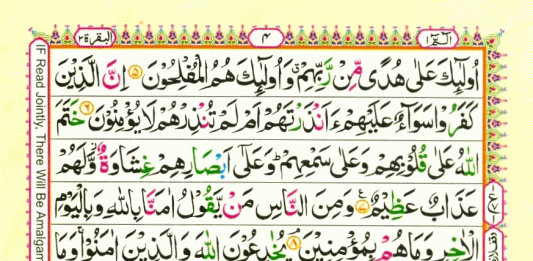 البقرة ٢
٤
الٓمٓ ١
اُولٰٓئِكَ عَلٰى هُدًى مِّنْ رَّبِّهِمْ وَاُولٰٓئِكَ هُمُ الْمُفْلِحُوْنَ ۝٥ اِنَّ الَّذِيْنَ
كَفَرُوْا سَوَآءٌ عَلَيْهِمْ ءَاَنْذَرْتَهُمْ اَمْ لَمْ تُنْذِرْهُمْ لَا يُؤْمِنُوْنَ ۝٦ خَتَمَ
اللّٰهُ عَلٰى قُلُوْبِهِمْ وَعَلٰى سَمْعِهِمْ وَعَلٰٓى اَبْصَارِهِمْ غِشَاوَةٌ وَّلَهُمْ
عَذَابٌ عَظِيْمٌ ۝٧ وَمِنَ النَّاسِ مَنْ يَّقُوْلُ اٰمَنَّا بِاللّٰهِ وَبِالْيَوْمِ
الْاٰخِرِ وَمَا هُمْ بِمُؤْمِنِيْنَ ۝٨ يُخٰدِعُوْنَ اللّٰهَ وَالَّذِيْنَ اٰمَنُوْا وَمَا
IF Read Jointly, There Will Be